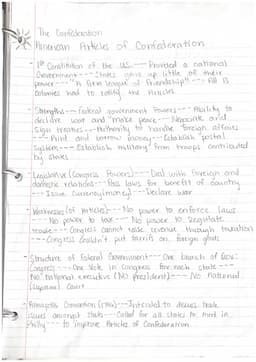 The Confederation
American Articles of Confederation
- 1st Constitution of the US --- Provided a national
Government --- States gave up little of their
power --- "A firm league of friendship" --- All 13
colonies had to ratify the Articles
- Strengths -- Federal government Powers --- Ability to
declare war and make peace -- Negotiate and
sign treaties -- Authority to handle foreign affairs
--- Print and borrow money --- Establish postal
system --- Establish military from troops contributed
by states
- Legislative (Congress Powers) -- Deal with foreign and
domestic relations -- Pass laws for benefit of country
--- Issue currency (money) -- Declare war
- Weaknesses (of Articles) -- No power to enforce laws
-- No power to tax -- No power to regulate
trade --- Congress cannot raise revenue through taxation
--- Congress couldn't put tariffs on foreign goods
- Structure of Federal Government -- One branch of Gov:
Congress --- One vote in Congress for each state ---
No national executive (NO president) --- No National
(supreme) Court
- Annapolis Convention (1786) -- Intended to discuss trade
issues amongst states -- Called for all states to meet in
Philly --- to improve Articles of Confederation